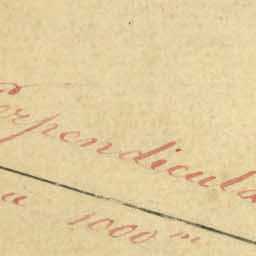 Perpendicula
a 1000 m